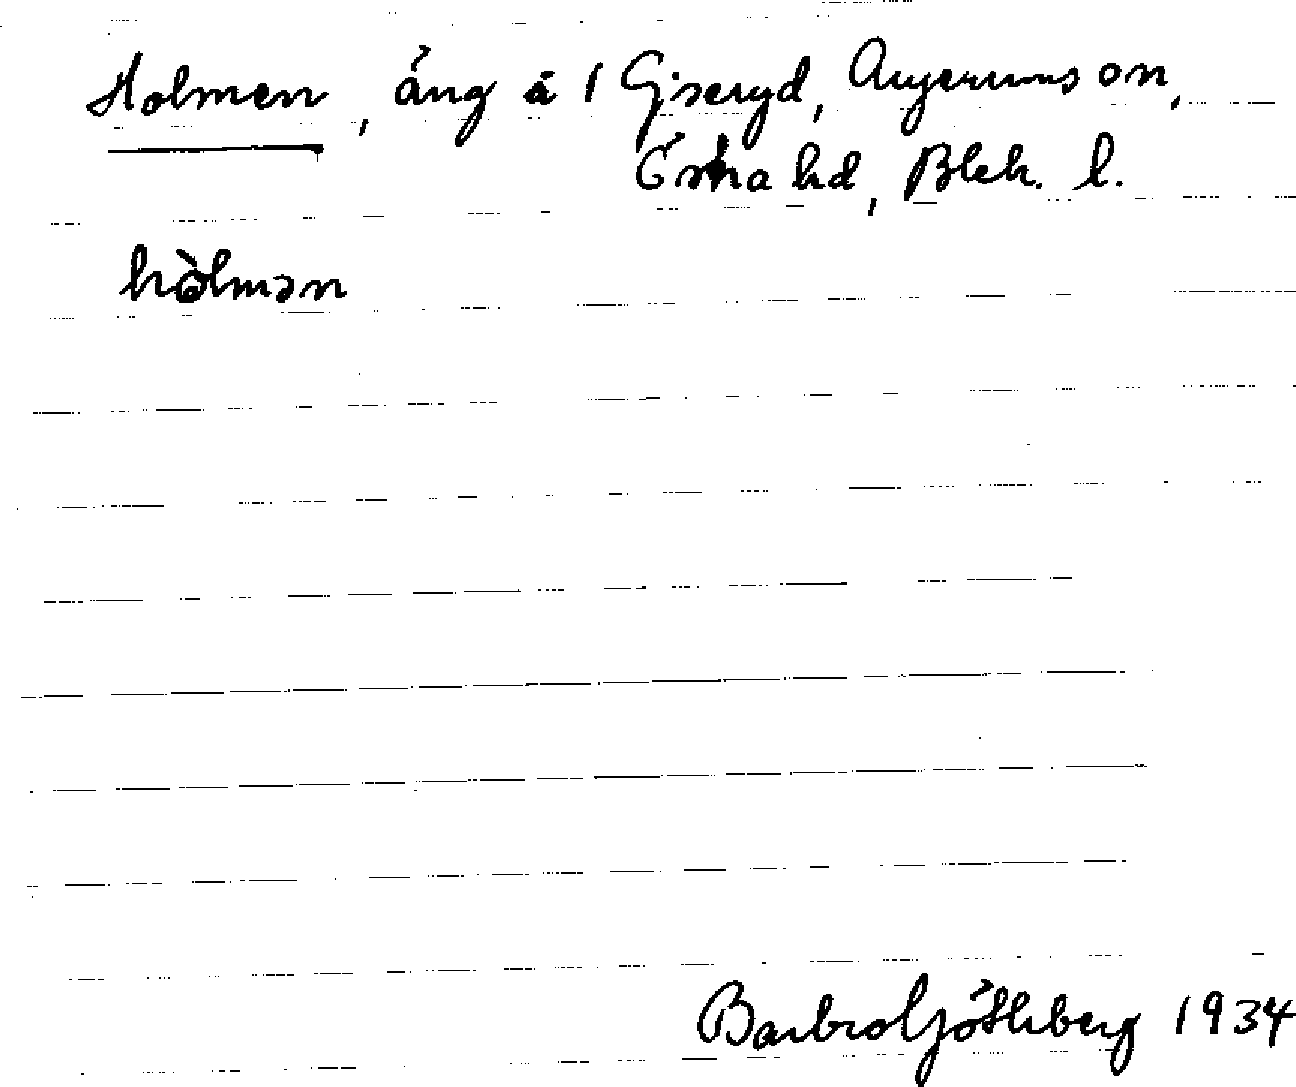 Holmen, äng å 1 Giseryd, Augerums sn,
Östra hd, Blek. l.
hòlmən
Barbro Göthberg 1934